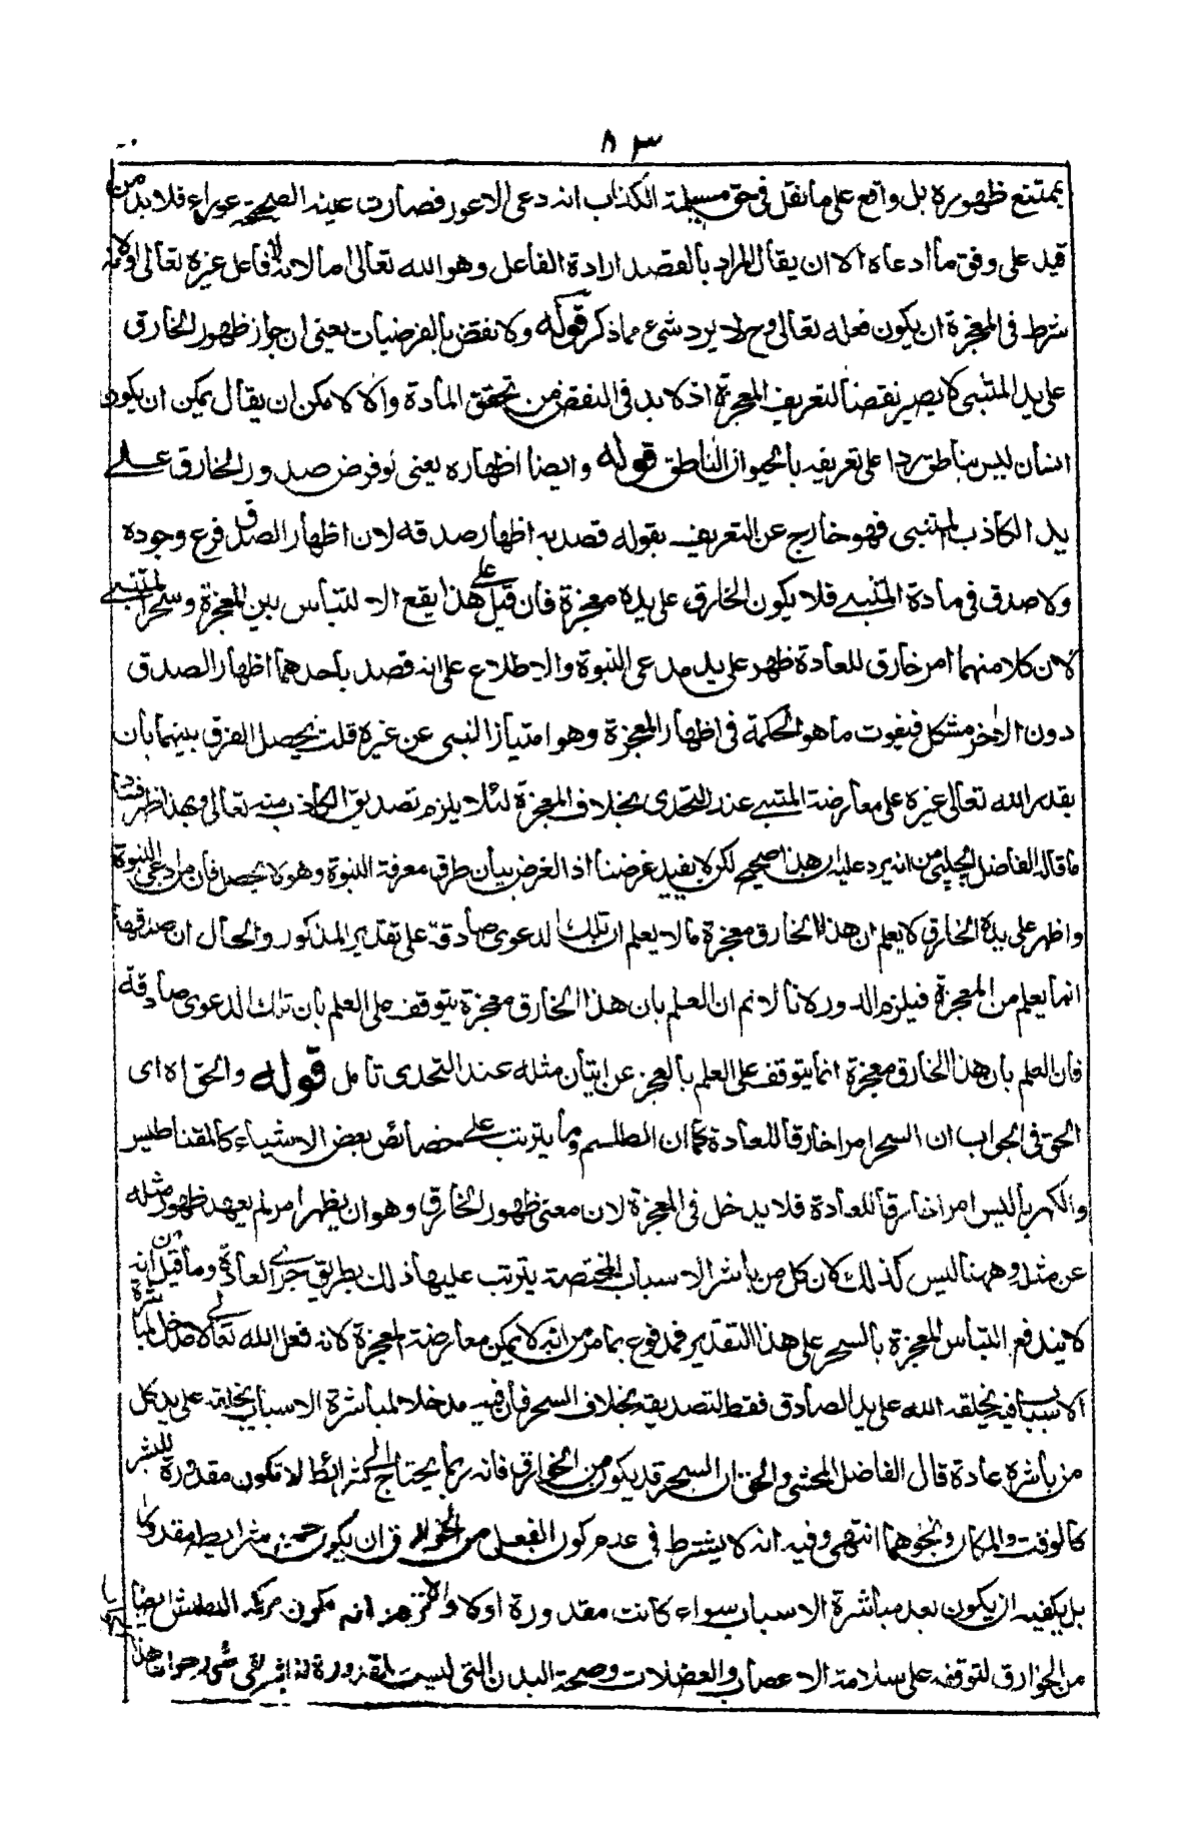 ٨٣
يمتنع ظهوره بل واقع على ما نقل فى حق مسيلمة الكذاب انه دعى الاعور فصارت عينه الصحيحة عوراء فلا بد من
قيد على وفق ما ادعاه الا ان يقال المراد بالقصد ارادة الفاعل وهو الله تعالى اما لانه لا فاعل غيره تعالى او لانه
شرط فى المعجزة ان يكون فعله تعالى وح لا يرد شىء مما ذكر قوله ولا نقض بالفرضيات يعنى ان جواز ظهور الخارق
على يد المتنبى لا يصير نقضا لتعريف المعجزة اذ لا بد فى النقض من تحقق المادة والا لامكن ان يقال يمكن ان يكون
انسان ليس بناطق يردا على تعريفه بالحيوان الناطق قوله وايضا اظهاره يعنى لو فرض صدور الخارق على
يد الكاذب المتنبى فهو خارج عن التعريف بقوله قصد به اظهار صدقه لان اظهار الصدق فرع وجوده
ولا صدق فى مادة المتنبى فلا يكون الخارق على يده معجزة فان قيل على هذا يقع الالتباس بين المعجزة وسحر المتنبى
لان كلا منهما امر خارق للعادة ظهر على يد مدعى النبوة والاطلاع على انه قصد باحدهما اظهار الصدق
دون الاخر مشكل فيفوت ما هو الحكمة فى اظهار المعجزة وهو امتياز النبى عن غيره قلت يحصل الفرق بينهما بان
يقدر الله تعالى غيره على معارضة المتنبى عند التحدى بخلاف المعجزة لئلا يلزم تصديق الكاذب منه تعالى وبهذا ظهر فساد
ما قاله الفاضل الچلپى من انه يرد عليه ان هذا صحيح لكن لا يفيد غرضنا اذ الغرض بيان طرق معرفة النبوة وهو لا يحصل فان من ادعى النبوة
واظهر على يده الخارق لا يعلم ان هذا الخارق معجزة ما لا يعلم ان تلك الدعوى صادقة على تقدير المذكور والحال ان صدقها
انما يعلم من المعجزة فيلزم الدور لانا لا نم ان العلم بان هذا الخارق معجزة يتوقف على العلم بان تلك الدعوى صادقة
فان العلم بان هذا الخارق معجزة انما يتوقف على العلم بالعجز عن اتيان مثله عند التحدى تامل قوله والحق اه اى
الحق فى الجواب ان السحر امرا خارقا للعادة كما ان الطلسم وما يترتب على خصائص بعض الاشياء كالمقناطيس
والكهربا ليس امرا خارقا للعادة فلا يدخل فى المعجزة لان معنى ظهور الخارق وهو ان يظهر امر لم يعهد ظهور مثله
عن مثله وههنا ليس كذلك لان كل من باشر الاسباب المختصة يترتب عليها ذلك بطريق جرى العادة وما قيل من انه
لا يندفع التباس المعجزة بالسحر على هذا التقدير فمدفوع بما مر من انه لا يمكن معارضة المعجزة لانه فعل الله تعالى لا مدخل لمباشرة
الاسباب فيه يخلقه الله على يد الصادق فقط لتصديقه بخلاف السحر فان فيه مدخلا لمباشرة الاسباب يخلقه على يد كل
من باشره عادة قال الفاضل المحشى والحق ان السحر قد يكون من الخوارق فانه ربما يحتاج الى شرائط لا تكون مقدورة للبشر
كالوقت والمكان ونحوهما انتهى وفيه انه لا يشترط فى عدم كون الفعل من الخوارق ان يكون جميع شرايطه مقدورا
بل يكفيه ان يكون بعد مباشرة الاسباب سواء كانت مقدورة اولا والا لزم ان يكون حركة البطش ايضا
من الخوارق لتوقفه على سلامة الاعصاب والعضلات وصحة البدن التى ليست بمقدورة